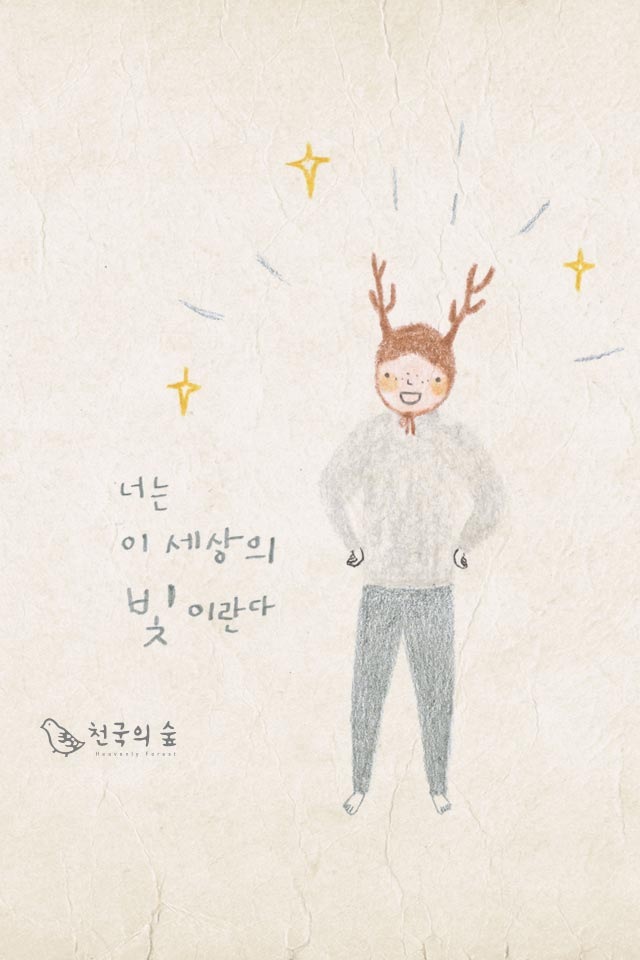 너는
이 세상의
빛이란다
천국의 숲
Heavenly Forest